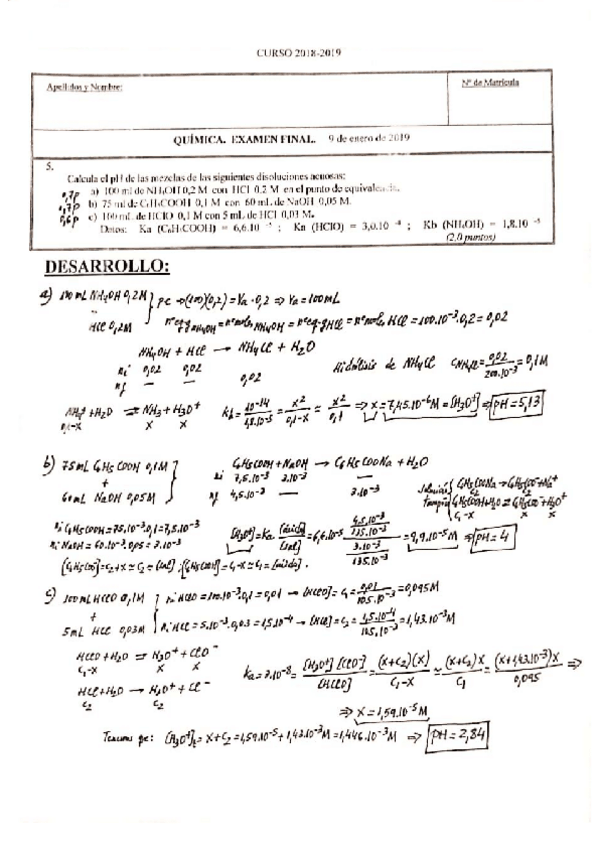 CURSO 2018-2019
Apellidos y Nombre:
Nº de Matrícula
QUÍMICA. EXAMEN FINAL. 9 de enero de 2019
5.
Calcula el pH de las mezclas de las siguientes disoluciones acuosas:
0,7p a) 100 ml de NH₄OH 0,2 M con HCl 0,2 M en el punto de equivalencia.
0,7p b) 75 ml de C₆H₅COOH 0,1 M con 60 mL de NaOH 0,05 M.
0,6p c) 100 mL de HClO 0,1 M con 5 mL de HCl 0,03 M.
Datos: Ka (C₆H₅COOH) = 6,6.10⁻⁵ ; Ka (HClO) = 3,0.10⁻⁸ ; Kb (NH₄OH) = 1,8.10⁻⁵
(2,0 puntos)
DESARROLLO:
a) 100 mL NH₄OH 0,2M } pe → (100)(0,2) = Va · 0,2 ⇒ Va = 100 mL
HCl 0,2M nº eq-g NH₄OH = nº moles NH₄OH = nº eq-g HCl = nº moles HCl = 100.10⁻³.0,2 = 0,02
NH₄OH + HCl → NH₄Cl + H₂O
ni 0,02 0,02
nf — — 0,02
Hidrólisis de NH₄Cl C NH₄Cl = 0,02/200.10⁻³ = 0,1M
NH₄⁺ + H₂O ⇌ NH₃ + H₃O⁺ Kh = 10⁻¹⁴/1,8.10⁻⁵ = x²/0,1-x ≃ x²/0,1 ⇒ x = 7,45.10⁻⁶M = [H₃O⁺] ⇒ pH = 5,13
0,1-x x x
b) 75 mL C₆H₅COOH 0,1M
+
60 mL NaOH 0,05M
C₆H₅COOH + NaOH → C₆H₅COONa + H₂O
ni 7,5.10⁻³ 3.10⁻³
nf 4,5.10⁻³ — 3.10⁻³
solución tampón { C₆H₅COONa → C₆H₅COO⁻ + Na⁺
C₂ C₂
C₆H₅COOH + H₂O ⇌ C₆H₅COO⁻ + H₃O⁺
C₁-x x x
ni C₆H₅COOH = 75.10⁻³.0,1 = 7,5.10⁻³
ni NaOH = 60.10⁻³.0,05 = 3.10⁻³
[H₃O⁺] = Ka [ácido]/[sal] = 6,6.10⁻⁵ (4,5.10⁻³/135.10⁻³)/(3.10⁻³/135.10⁻³) = 9,9.10⁻⁵M ⇒ pH = 4
[C₆H₅COO⁻] = C₂ + x ≃ C₂ = [sal] ; [C₆H₅COOH] = C₁ - x ≃ C₁ = [ácido].
c) 100 mL HClO 0,1M } ni HClO = 100.10⁻³.0,1 = 0,01 → [HClO] = C₁ = 0,01/105.10⁻³ = 0,095M
+
5 mL HCl 0,03M ni HCl = 5.10⁻³.0,03 = 1,5.10⁻⁴ → [HCl] = C₂ = 1,5.10⁻⁴/105.10⁻³ = 1,43.10⁻³M
HClO + H₂O ⇌ H₃O⁺ + ClO⁻
C₁-x x x
HCl + H₂O → H₃O⁺ + Cl⁻
C₂ C₂
Ka = 3.10⁻⁸ = [H₃O⁺][ClO⁻]/[HClO] = (x+C₂)(x)/C₁-x ≃ (x+C₂)x/C₁ = (x+1,43.10⁻³)x/0,095 ⇒
⇒ x = 1,59.10⁻⁵M
[H₃O⁺]t = x + C₂ = 1,59.10⁻⁵ + 1,43.10⁻³M = 1,446.10⁻³M ⇒ pH = 2,84